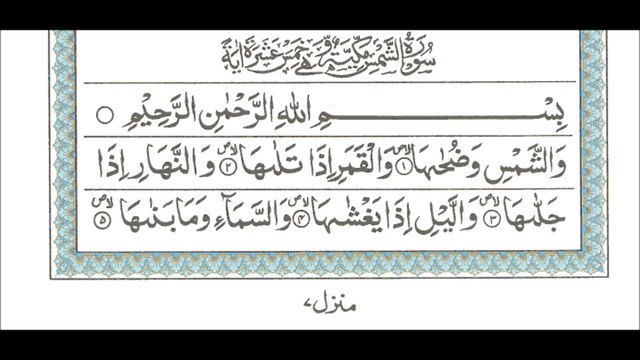 سُوْرَةُ الشَّمْسِ مَكِّيَّةٌ وَّهِيَ خَمْسَ عَشَرَةَ اٰيَةً
بِسْمِ اللهِ الرَّحْمٰنِ الرَّحِيْمِ ○
وَالشَّمْسِ وَضُحٰىهَا ۙ﴿۱﴾ وَالْقَمَرِ اِذَا تَلٰىهَا ۙ﴿۲﴾ وَالنَّهَارِ اِذَا
جَلّٰىهَا ۙ﴿۳﴾ وَالَّيْلِ اِذَا يَغْشٰىهَا ۙ﴿۴﴾ وَالسَّمَآءِ وَمَا بَنٰىهَا ۙ﴿۵﴾
منزل ۷